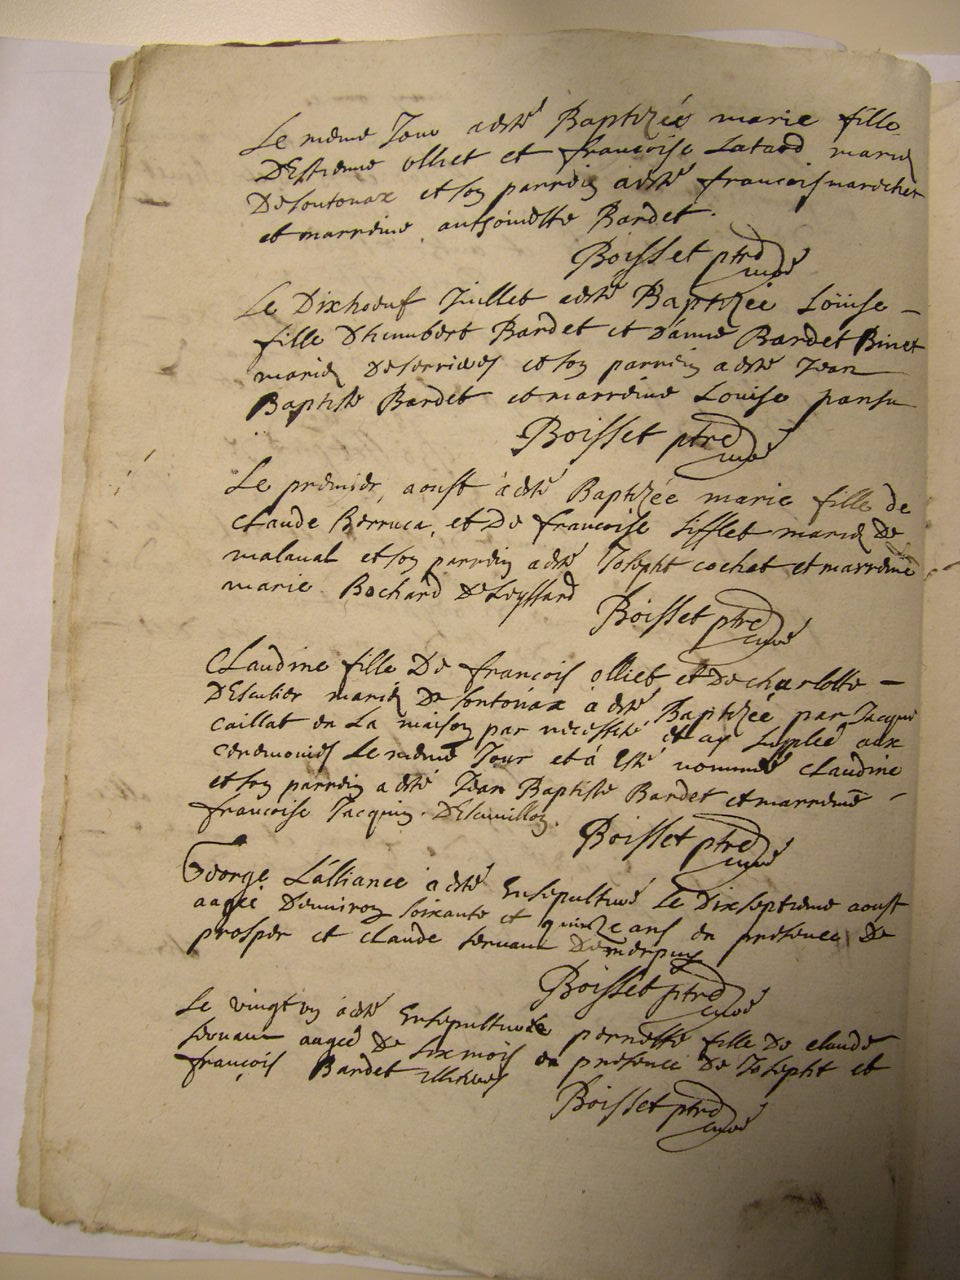 Le même Jour a esté Baptizée marie fille
D'Estienne olliet et françoise Latard mariés
De soutonax et son parrein a esté françois marechet
et marreine antoinette Bardet.
Boisset ptre
curé
Le Dixhoeuf Juillet a esté Baptizée Loüise
fille D'humbert Bardet et D'anne Bardet Binet
mariés De serrieres et son parrein a esté Jean
Baptiste Bardet et marreine Louise pansu
Boisset ptre
curé
Le premier aoust à esté Baptizée marie fille de
claude Berruca et De françoise sifflet mariés De
malaval et son parrein a esté Joseph cochet et marreine
marie Bochard De Leyssard
Boisset ptre
curé
Claudine fille De françois olliet et De charlotte
mariés De sontonax à esté Baptizée par Jacque
caillat en La maison par nécessité et ay supléé aux
ceremonies Le meme Jour et à Esté nommée claudine
et son parrein a esté Jean Baptiste Bardet et marreine
françoise Jacquin
Boisset ptre
curé
George Lalliance à esté Ensepulturé Le Dixseptieme aoust
aagé Denviron soixante et quinze ans en présence De
prosper et claude servant
Boisset ptre
curé
Le vingt un à esté Ensepulturée pernette fille De claude
servant aagée De six mois en présence De Joseph et
françois Bardet illitérés
Boisset ptre
curé